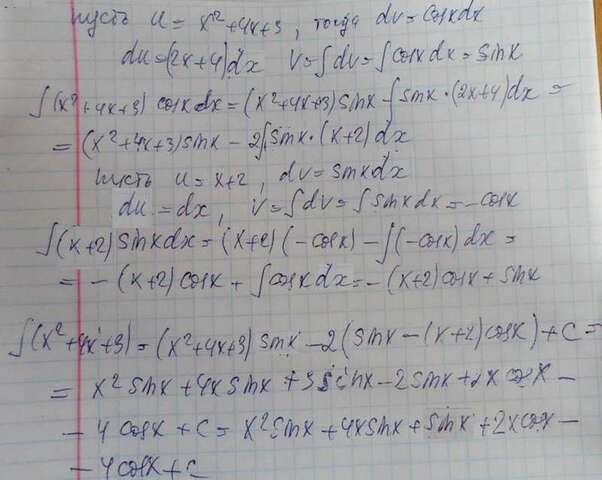 пусть u = x²+4x+3, тогда dv = cosxdx
du = (2x+4)dx v = ∫dv = ∫cosxdx = sinx
∫(x²+4x+3) cosxdx = (x²+4x+3)sinx - ∫sinx·(2x+4)dx =
= (x²+4x+3)sinx - 2∫sinx·(x+2)dx
пусть u = x+2, dv = sinxdx
du = dx, v = ∫dv = ∫sinxdx = -cosx
∫(x+2)sinxdx = (x+2)(-cosx) - ∫(-cosx)dx =
= -(x+2)cosx + ∫cosxdx = -(x+2)cosx + sinx
∫(x²+4x+3) = (x²+4x+3)sinx - 2(sinx - (x+2)cosx) + C =
= x²sinx + 4xsinx + 3sinx - 2sinx + 2xcosx -
- 4cosx + C = x²sinx + 4xsinx + sinx + 2xcosx -
- 4cosx + C